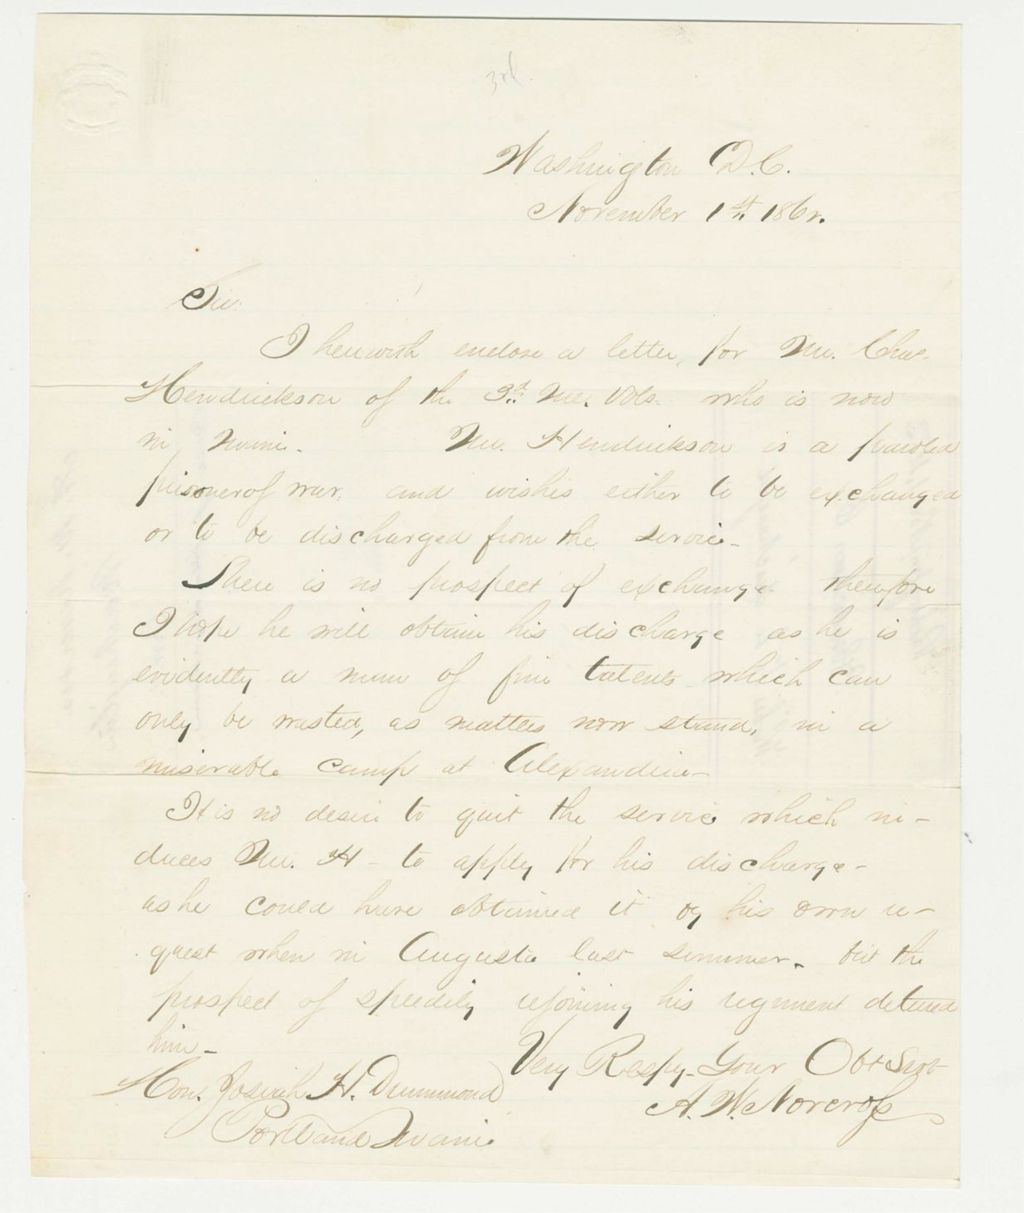 3rd.
Washington D.C.
November 1st. 1862.
Sir:
I herewith enclose a letter, for Mr. Chas.
Hendrickson of the 3rd. Me. Vols. who is now
in Maine. Mr. Hendrickson is a paroled
prisoner of war, and wishes either to be exchanged
or to be discharged from the service-
There is no prospect of exchange therefore
I hope he will obtain his discharge as he is
evidently a man of fine talents which can
only be wasted, as matters now stand, in a
miserable camp at Alexandria-
It is no desire to quit the service which in-
duces Mr. H- to apply for his discharge-
as he could have obtained it by his own re-
quest when in Augusta last summer. but the
prospect of speedily rejoining his regiment deterred
him-
Very Respy- Your Obt Servt
A. W. Norcross
Hon. Josiah H. Drummond
Portland Maine